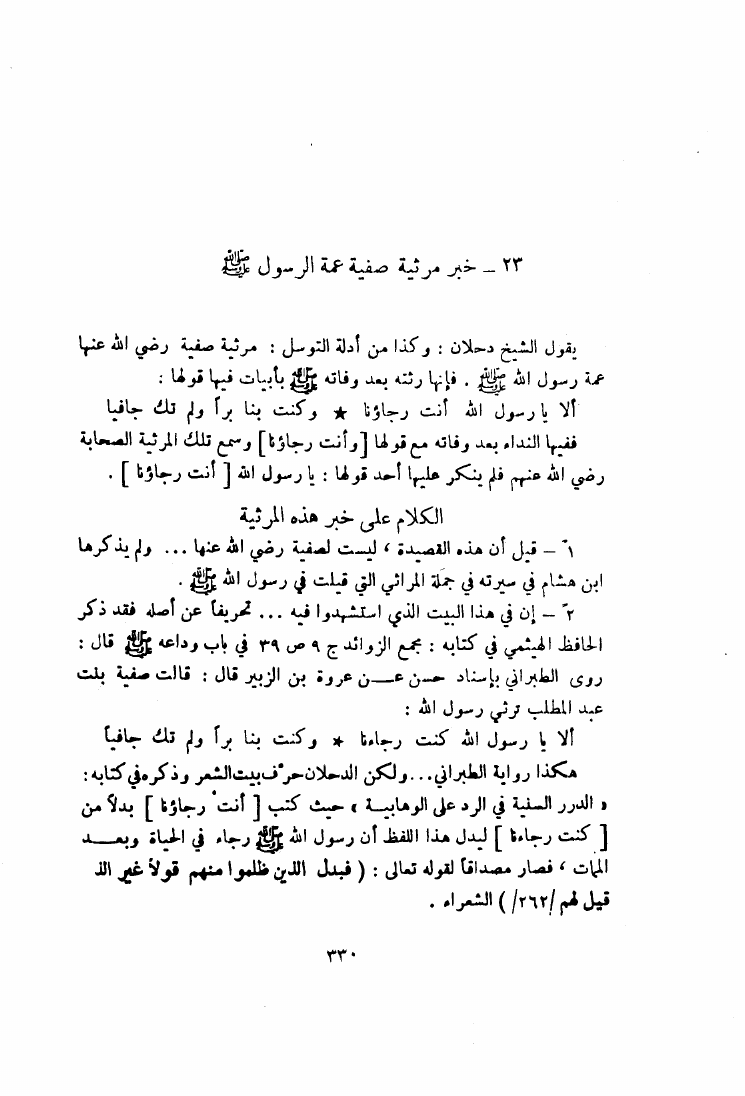 ٢٣ – خبر مرثية صفية عمة الرسول ﷺ
يقول الشيخ دحلان : وكذا من أدلة التوسل : مرثية صفية رضي الله عنها
عمة رسول الله ﷺ . فإنها رثته بعد وفاته ﷺ بأبيات فيها قولها :
ألا يا رسول الله أنت رجاؤنا ★ وكنت بنا براً ولم تك جافيا
ففيها النداء بعد وفاته مع قولها [ وأنت رجاؤنا ] وسمع تلك المرثية الصحابة
رضي الله عنهم فلم ينكر عليها أحد قولها : يا رسول الله [ أنت رجاؤنا ] .
الكلام على خبر هذه المرثية
١ – قيل أن هذه القصيدة ، ليست لصفية رضي الله عنها ... ولم يذكرها
ابن هشام في سيرته في جملة المراثي التي قيلت في رسول الله ﷺ .
٢ – إن في هذا البيت الذي استشهدوا فيه ... تحريفاً عن أصله فقد ذكر
الحافظ الهيثمي في كتابه : مجمع الزوائد ج ٩ ص ٣٩ في باب وداعه ﷺ قال :
روى الطبراني بإسناد حسن عن عروة بن الزبير قال : قالت صفية بنت
عبد المطلب ترثي رسول الله :
ألا يا رسول الله كنت رجاءنا ★ وكنت بنا براً ولم تك جافياً
هكذا رواية الطبراني... ولكن الدحلان حرّف بيت الشعر وذكره في كتابه :
« الدرر السنية في الرد على الوهابية » حيث كتب [ أنت رجاؤنا ] بدلاً من
[ كنت رجاءنا ] ليدل هذا اللفظ أن رسول الله ﷺ رجاء في الحياة وبعد
المات ، فصار مصداقاً لقوله تعالى : ( فبدل الذين ظلموا منهم قولاً غير الذ
قيل لهم /٢٦٢/ ) الشعراء .
٣٣٠